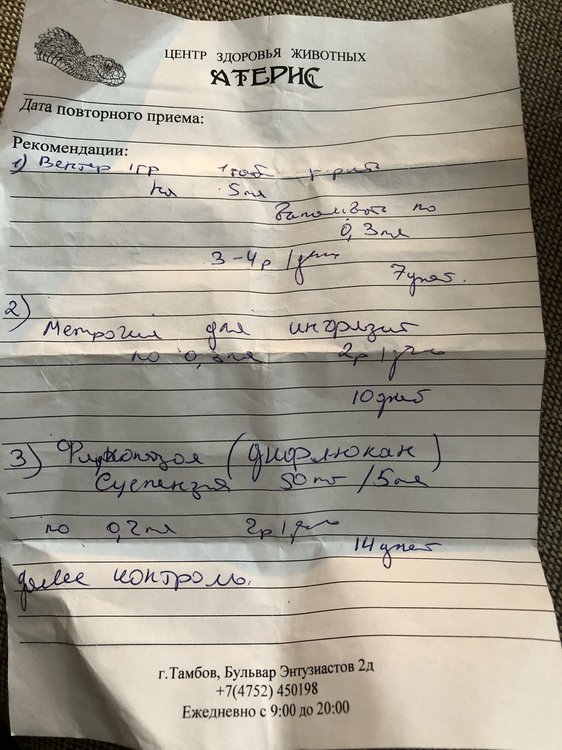 ЦЕНТР ЗДОРОВЬЯ ЖИВОТНЫХ
АТЕРИС
Дата повторного приема:
Рекомендации:
1) Вентер 1гр 1 таб
на 5мл
Выпаивать по
0,3мл
3-4р/день
7 дней.
2)
Метрогил для инфузий
по 0,3мл 2р/день
10 дней
3) Флуконазол (дифлюкан)
Суспензия 50мг/5мл
по 0,2мл 2р/день
14 дней
далее контроль.
г.Тамбов, Бульвар Энтузиастов 2д
+7(4752) 450198
Ежедневно с 9:00 до 20:00